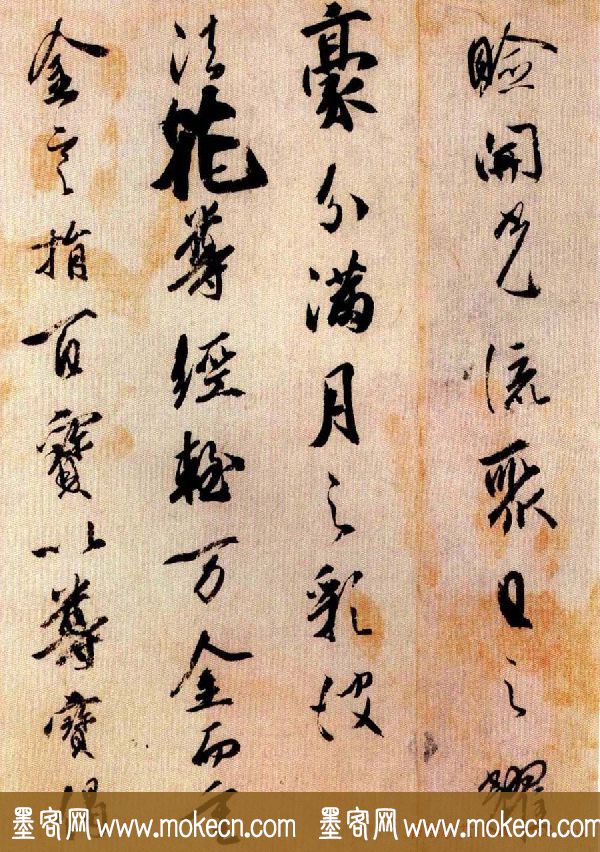 瞼開光流聚日之耀
豪分滿月之彩
法能尊經輪万金而
金指百寶以尊寶
墨客网 www.mokecn.com 墨客网 www.mokecn.com